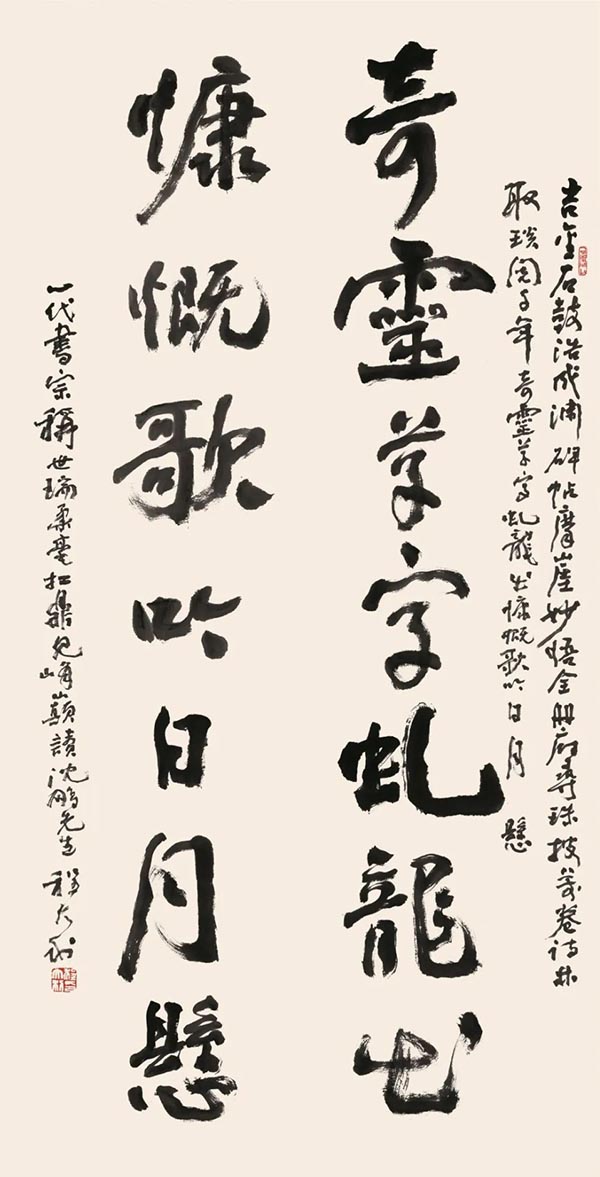 吉金石鼓浩成渊碑帖摩崖妙悟全册府寻珠披万卷诗林
取琰阅千年奇靈草字虬龍出慷慨歌吟日月懸
奇靈草字虬龍出
慷慨歌吟日月懸
一代書宗稱世瑞柔毫扛鼎見峰巔讀沈鹏先生程大利